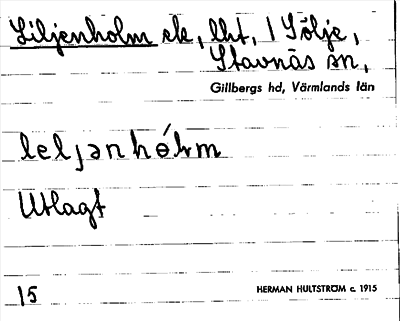 Liljenholm ek, lht, i Sölje,
Stavnäs sn,
Gillbergs hd, Värmlands län
Utlagt
15
HERMAN HULTSTRÖM c. 1915